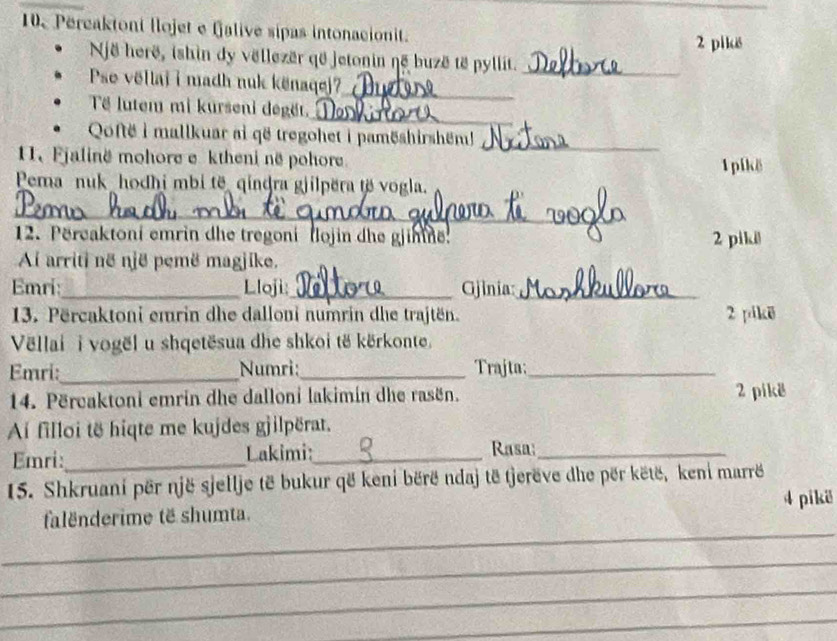 10. Përcaktoni llojet e fjalive sipas intonacionit. 2 pikë
• Një herë, ishin dy vëllezër që jetonin në buzë të pyllit. Deftore
• Pse vëllai i madh nuk kënaqej? Pyetëse
• Të lutem mi kurseni degët. Dëshirore
• Qoftë i mallkuar ai që tregohet i pamëshirshëm! Nxitëse
11. Fjalinë mohore e ktheni në pohore. 1pikë
Pema nuk hodhi mbi të qindra gjilpëra të vogla.
Pema hodhi mbi të qindra gjilpera të vogla
12. Përcaktoni emrin dhe tregoni llojin dhe gjininë. 2 pikë
Ai arriti në një pemë magjike.
Emri: Lloji: Deftore Gjinia: Mashkullore
13. Përcaktoni emrin dhe dalloni numrin dhe trajtën. 2 pikë
Vëllai i vogël u shqetësua dhe shkoi të kërkonte.
Emri: Numri: Trajta:
14. Përcaktoni emrin dhe dalloni lakimin dhe rasën. 2 pikë
Ai filloi të hiqte me kujdes gjilpërat.
Emri: Lakimi: Rasa:
15. Shkruani për një sjellje të bukur që keni bërë ndaj të tjerëve dhe për këtë, keni marrë
falënderime të shumta. 4 pikë